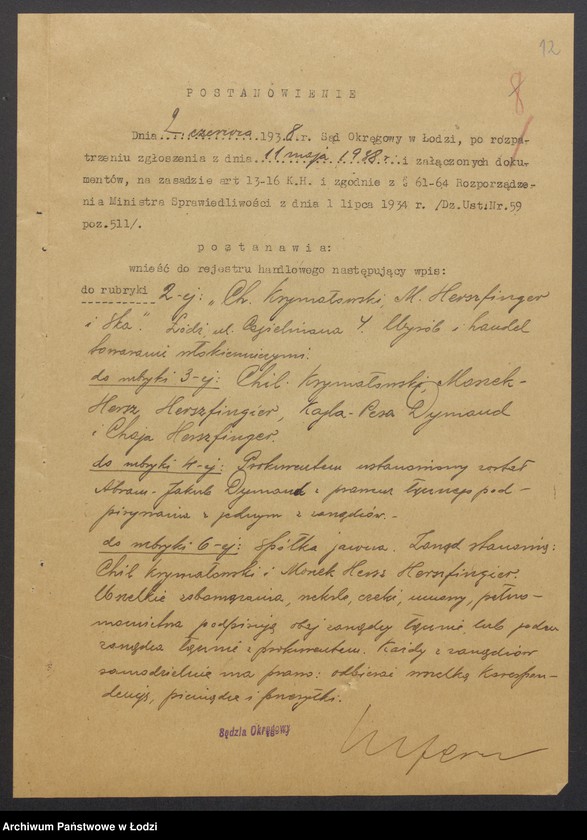 12
8
POSTANOWIENIE
Dnia 2 czerwca 1938.r. Sąd Okręgowy w Łodzi, po rozpa-
trzeniu zgłoszenia z dnia 11 maja 1938 r. i załączonych doku-
mentów, na zasadzie art 13-16 K.H. i zgodnie z § 61-64 Rozporządze-
nia Ministra Sprawiedliwości z dnia 1 lipca 1934 r. /Dz.Ust.Nr.59
poz.511/.
postanawia:
wnieść do rejestru handlowego następujący wpis:
do rubryki 2-ej: „Ch. Krymałowski, M. Herszfinger
i Ska". Łódź, ul. Cegielniana 4. Wyrób i handel
towarami włókienniczymi.
do rubryki 3-ej: Chil Krymałowski, Monek-
Hersz Herszfingier, Kajla-Pesa Dymand
i Chaja Herszfinger.
do rubryki 4-ej: Prokurentem ustanowiony został
Abram-Jakub Dymand z prawem łącznego pod-
pisywania z jednym z zarządców.-
do rubryki 6-ej: Spółka jawna. Zarząd stanowią:
Chil Krymałowski i Monek Hersz Herszfingier.
Wszelkie zobowiązania, weksle, czeki, umowy, pełno-
mocnictwa podpisują obaj zarządcy łącznie, lub jeden
zarządca łącznie z prokurentem. Każdy z zarządców
samodzielnie ma prawo: odbierać wszelką korespon-
dencję, pieniądze i przesyłki.
Sędzia Okręgowy
Archiwum Państwowe w Łodzi